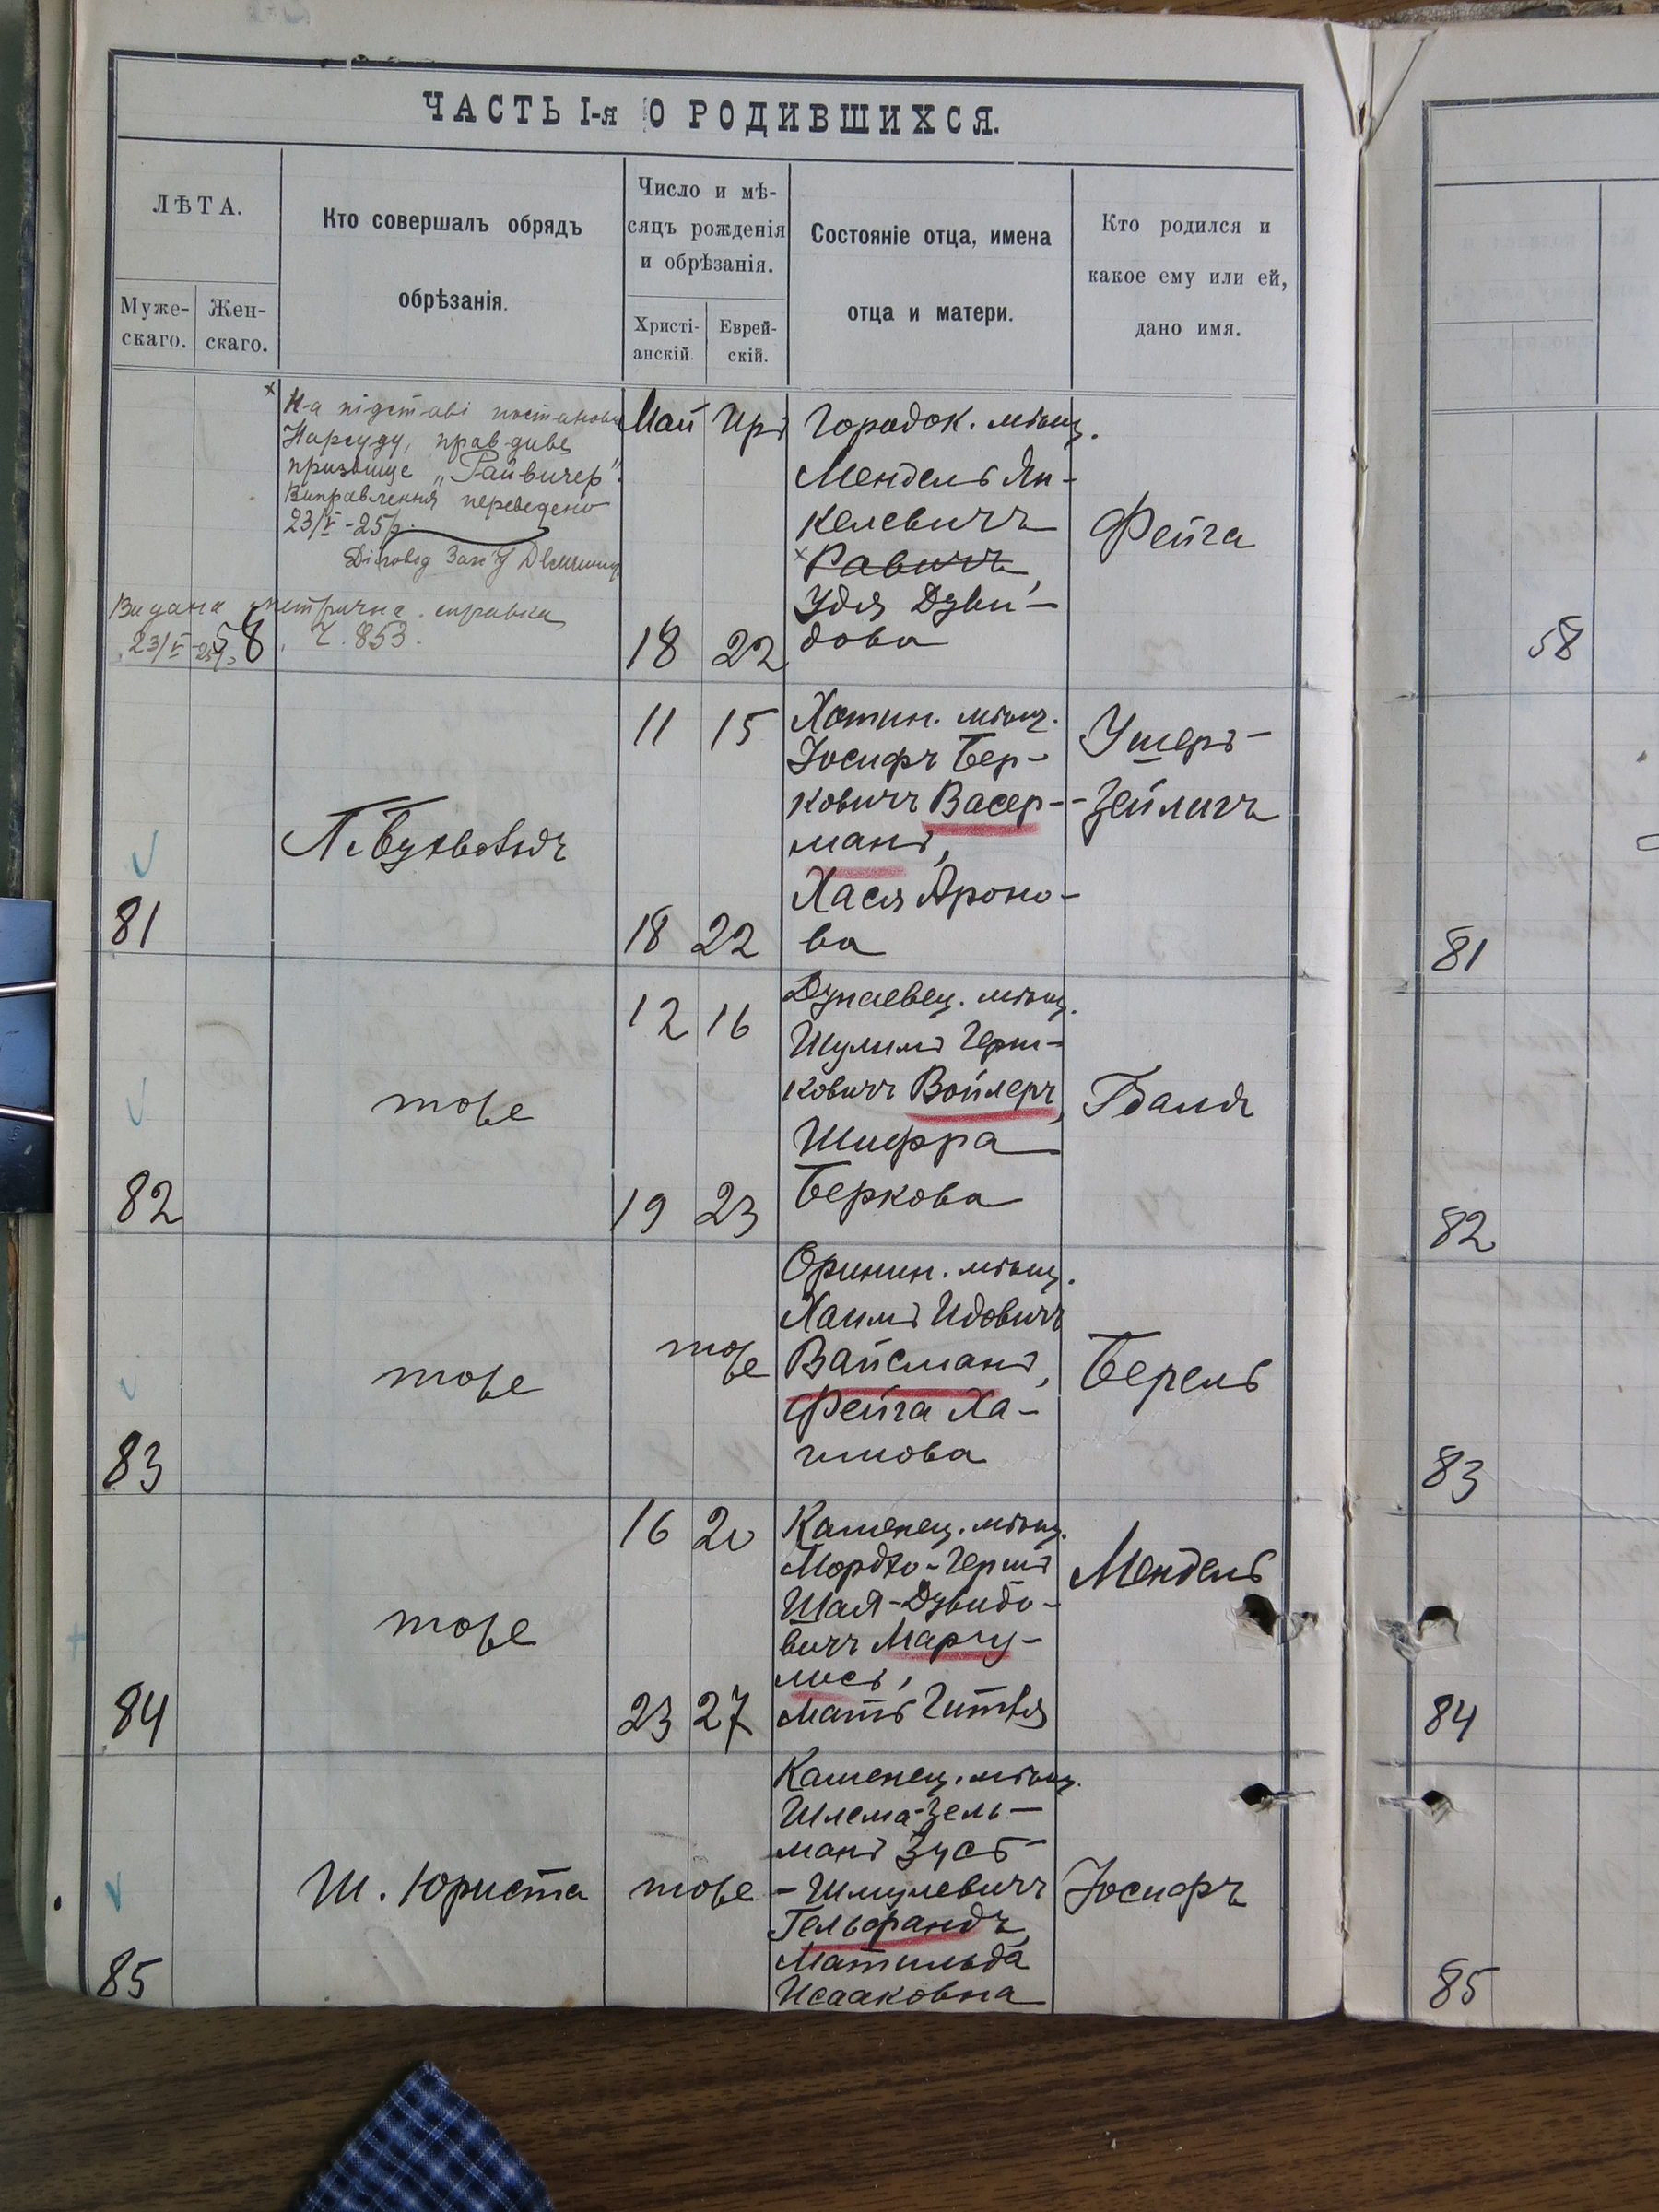 ЧАСТЬ I-я О РОДИВШИХСЯ.
ЛѢТА.
Муже-
скаго.
Жен-
скаго.
Кто совершалъ обрядъ
обрѣзанія.
Число и мѣ-
сяцъ рожденія
и обрѣзанія.
Христі-
анскій.
Еврей-
скій.
Состояніе отца, имена
отца и матери.
Кто родился и
какое ему или ей,
дано имя.
× На підставі постанови
Нарсуду, правдиве
призвище „Райвичер".
Виправлення переведено
23/V -25р.
Діловод
Видана метрична справка
23/V -25р. Ч. 853.
58
Май Иръ
18 22
Городок. мѣщ.
Мендель Ян-
келевичъ
× Равичъ,
Удя Дуви-
дова
Фейга
58
81
11 15
18 22
Хотин. мѣщ.
Іосифъ Бер-
ковичъ Васер-
манъ,
Хася Ароно-
ва
Ушеръ-
-Зейлигъ
81
82
тоже
12 16
19 23
Дунаевец. мѣщ.
Шулимъ Герш-
ковичъ Войлеръ,
Шифра
Беркова
Гдаля
82
83
тоже
тоже
Оринин. мѣщ.
Хаимъ Идовичъ
Вайсманъ,
Фейга Ха-
имова
Берель
83
84
тоже
16 20
23 27
Каменец. мѣщ.
Мордко-Гершъ
Шая-Дувидо-
вичъ Маргу-
лисъ,
мать Гитля
Мендель
84
85
Ш. Юриста
тоже
Каменец. мѣщ.
Шлема-Зель-
манъ Зусь-
-Шмулевичъ
Гельфандъ,
Матильда
Исааковна
Іосифъ
85